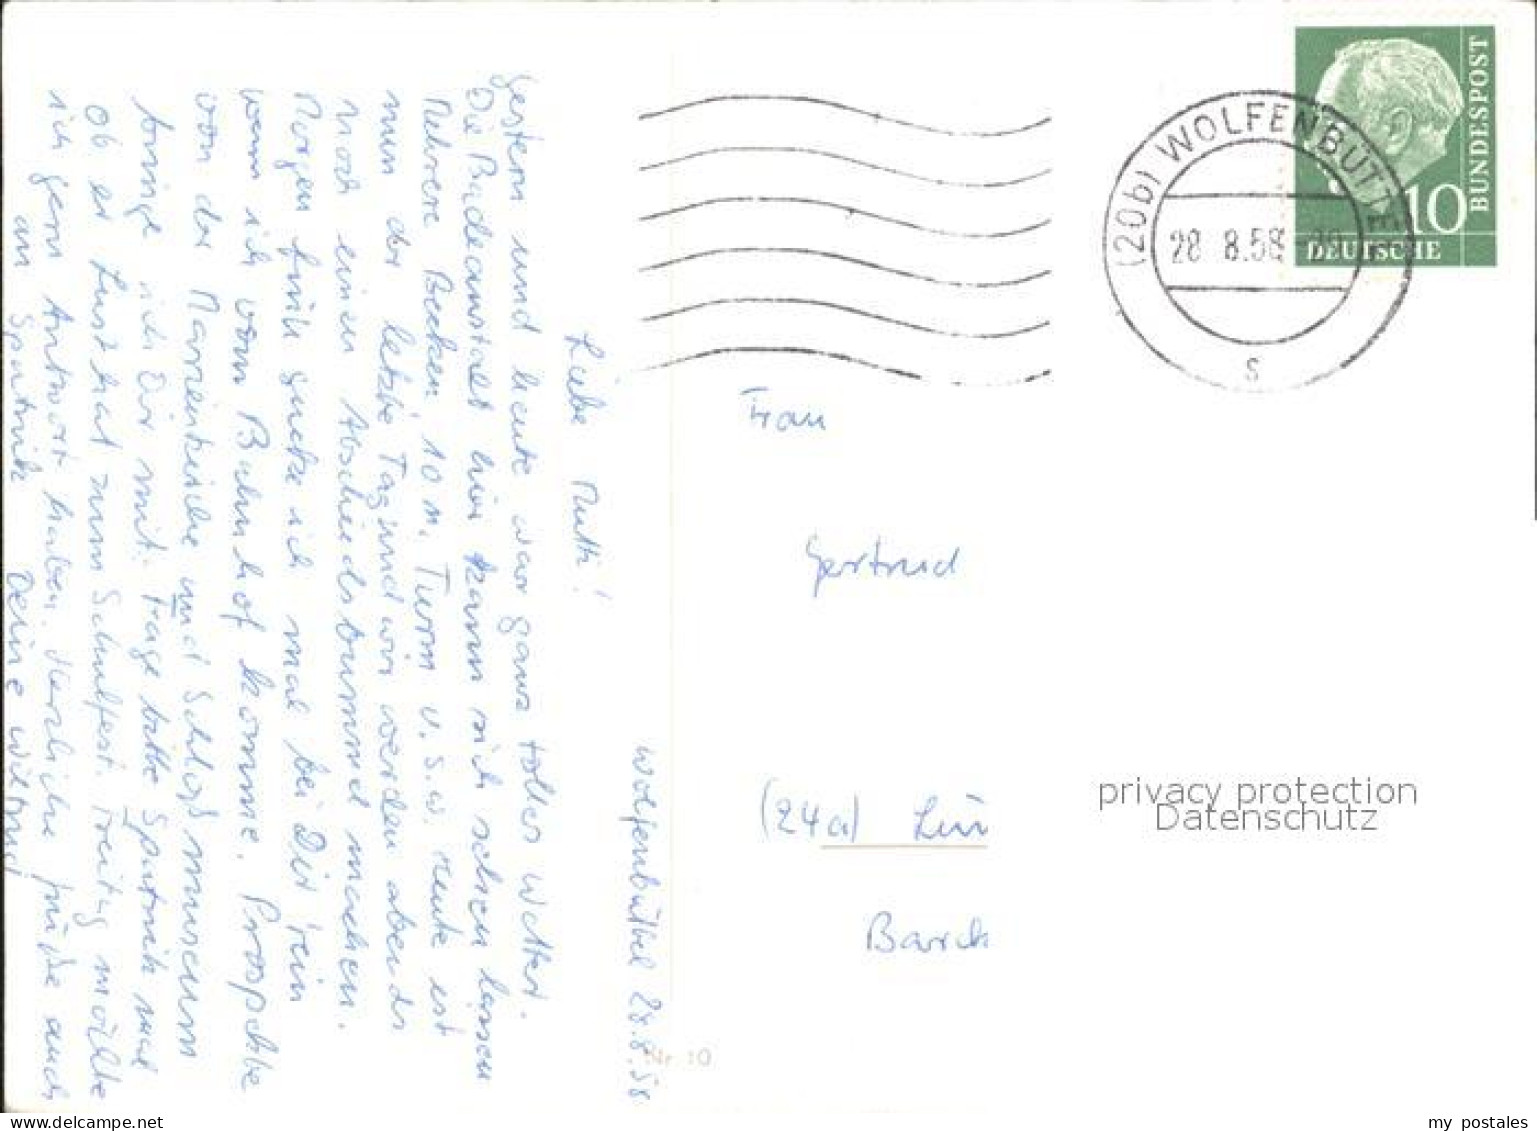 Wolfenbüttel 28.8.58
Liebe Mutti!
Gestern und heute war ganz tolles Wetter.
Die Badeanstalt hier kann sich sehen lassen
Mehrere Becken, 10 m. Turm u.s.w. Heute ist
nun der letzte Tag und wir werden abends
noch einen Abschiedsbummel machen.
Morgen früh gucke ich mal bei Dir rein
wenn ich vom Bahnhof komme. Prospekte
von der Marienkirche und Schloßmuseum
bringe ich Dir mit. Frage bitte Sputnik mal
ob er Lust hat zum Schulfest. Freitag möchte
ich gern Antwort haben. Herzliche Grüße auch
an Sputnik Deine Wiltrud
(20b) WOLFENBÜTTEL
28 8.58
s
10
DEUTSCHE
BUNDESPOST
Frau
Gertrud
(24a) Lün
Barck
privacy protection
Datenschutz
Nr. 10
my_postales